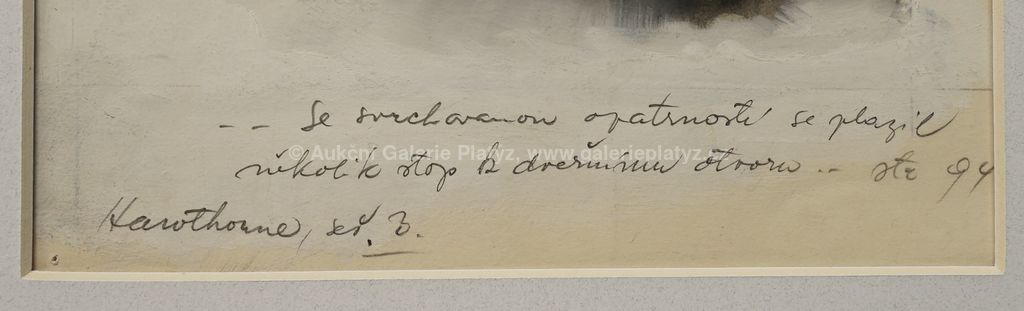 -- Se svrchovanou opatrností se plazil
© Aukční Galerie Platýz, www.galerieplatyz.cz
několik stop k dveřnímu otvoru -- str 94
Hawthorne, seš. 3.